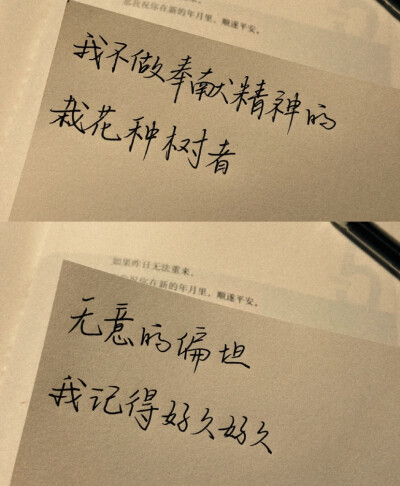 祝你在新的年月里,顺遂平安。
我不做奉献精神的
栽花种树者
如果昨日无法重来,
祝你在新的年月里、顺遂平安。
无意的偏坦
我记得好久好久